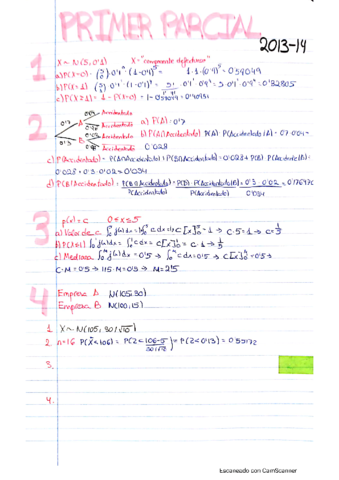 PRIMER PARCIAL
2013-14
1
X ~ N(5, 0'1) X = "componente defectuoso"
a) P(X=0) = (5 0) 0'1⁰ (1-0'1)⁵ = 1·1·(0'9)⁵ = 0'59049
b) P(X=1) (5 1) 0'1¹ (1-0'1)⁴ = 5! 0'1¹ 0'9⁴ = 5·0'1¹·0'9⁴ = 0'32805
c) P(X≥1) = 1 - P(X=0) = 1 - 0'59049 = 0'40951
2
0'04 Accidentado
0'7 A Accidentado a) P(A) = 0'7
0'3 B 0'02 Accidentado b) P(A∩Accidentado) = P(A)·P(Accidentado|A) = 0'7·0'04 =
0'98 Accidentado 0'028
c) P(Accidentado) = P(A∩Accidentado) + P(B∩Accidentado) = 0'028 + P(B)·P(Accidentado|B) =
0'028 + 0'3·0'02 = 0'034
d) P(B|Accidentado) = P(B∩Accidentado) = P(B)·P(Accidentado|B) = 0'3·0'02 = 0'176470
P(Accidentado) P(Accidentado) 0'034
3
f(x) = c 0≤x≤5
a) Valor de c ∫₀⁵ f(x)dx = ∫₀⁵ c dx → c[x]₀⁵ = 1 → c·5 = 1 → c = 1/5
b) P(X≤1) ∫₀¹ f(x)dx = ∫₀¹ c dx = c[x]₀¹ = c·1 = 1/5
c) Mediana ∫₀ᴹ f(x)dx = 0'5 → ∫₀ᴹ c dx = 0'5 → c[x]₀ᴹ = 0'5 →
C·M = 0'5 → 1/5·M = 0'5 → M = 2'5
4
Empresa A N(105, 30)
Empresa B N(100, 15)
1. X ~ N(105, 30/√10)
2. n=16 P(X̄<106) = P(Z< 106-5 / 30/√2) = P(Z<0'13) = 0'55172
3.
4.
Escaneado con CamScanner